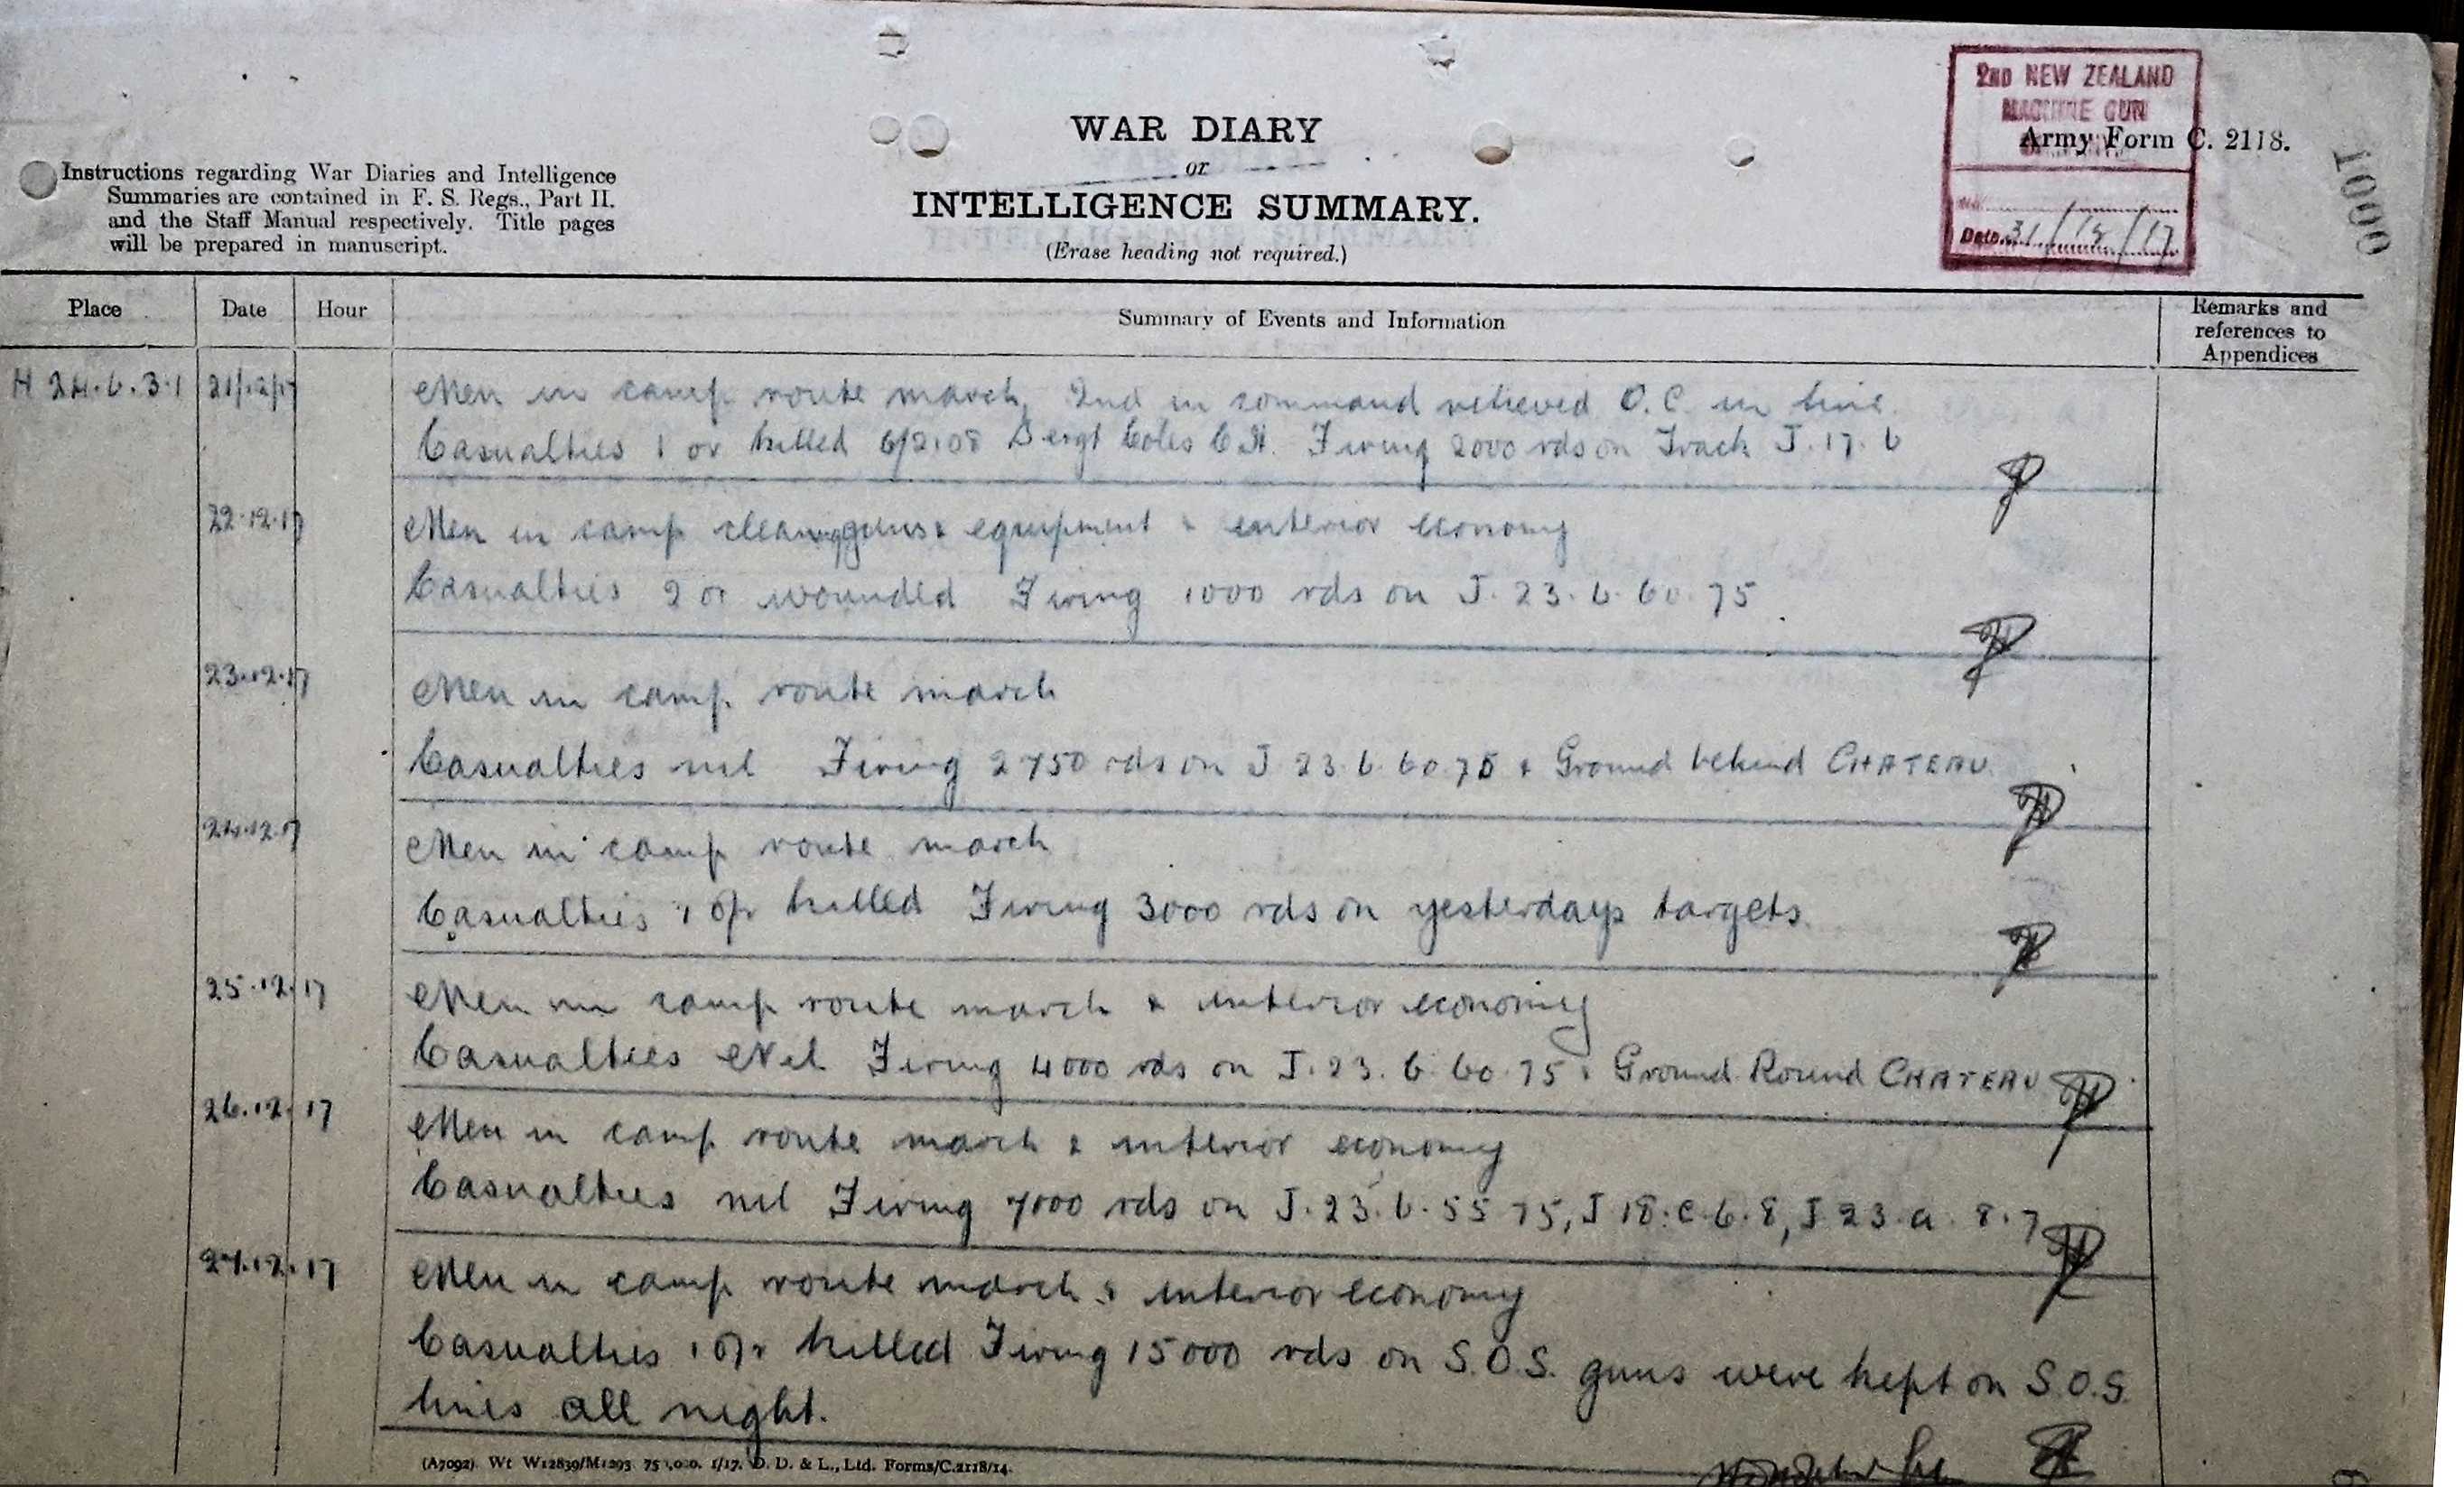 2ND NEW ZEALAND
MACHINE GUN
Army Form C. 2118.
Date 31/12/17
1000
WAR DIARY
or
INTELLIGENCE SUMMARY.
(Erase heading not required.)
Instructions regarding War Diaries and Intelligence
Summaries are contained in F. S. Regs., Part II.
and the Staff Manual respectively. Title pages
will be prepared in manuscript.
Place Date Hour Summary of Events and Information Remarks and
references to
Appendices
H 24.b.3.1 21/12/17 Men in camp route march, 2nd in command relieved O.C. in line.
Casualties 1 or killed 6/2108 Sergt Coles C.H. Firing 2000 rds on Track J.17.b
22.12.17 Men in camp cleaning guns & equipment & interior economy
Casualties 2 or wounded Firing 1000 rds on J.23.b.60.75
23.12.17 Men in camp route march
Casualties nil Firing 2750 rds on J 23.b.60.75 & Ground behind CHATEAU
24.12.17 Men in camp route march
Casualties 1 o/r killed Firing 3000 rds on yesterdays targets.
25.12.17 Men in camp route march & interior economy
Casualties Nil Firing 4000 rds on J.23.b.60.75 & Ground Round CHATEAU
26.12.17 Men in camp route march & interior economy
Casualties nil Firing 7000 rds on J.23.b.55 75, J 18.c.6.8, J 23.a.8.7
27.12.17 Men in camp route march & interior economy
Casualties 1 o/r killed Firing 15000 rds on S.O.S. guns were kept on S.O.S.
lines all night.
(A7092). Wt W12839/M1293 75 ,0.0. 1/17. D. D. & L., Ltd. Forms/C.2118/14.